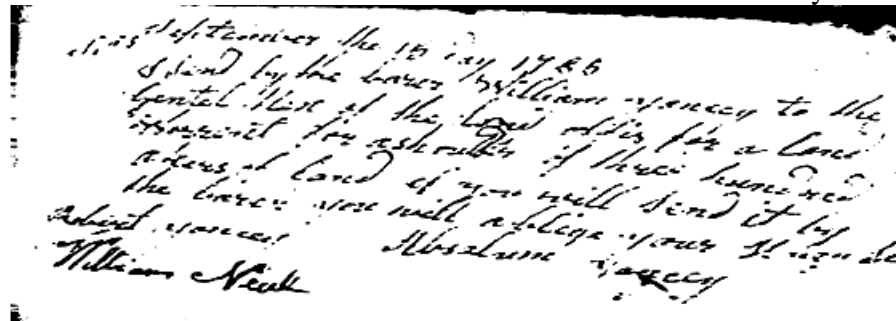 September the 18 Day 1786
Sir I Send by the barer William yancey to the
Gentel Men of the Land offis for a Land
Warrint for a of three hundred
akers of Land if you will Send it by
the barer you will ablige your
Robirt yancey Absalum yancey
William Neuk